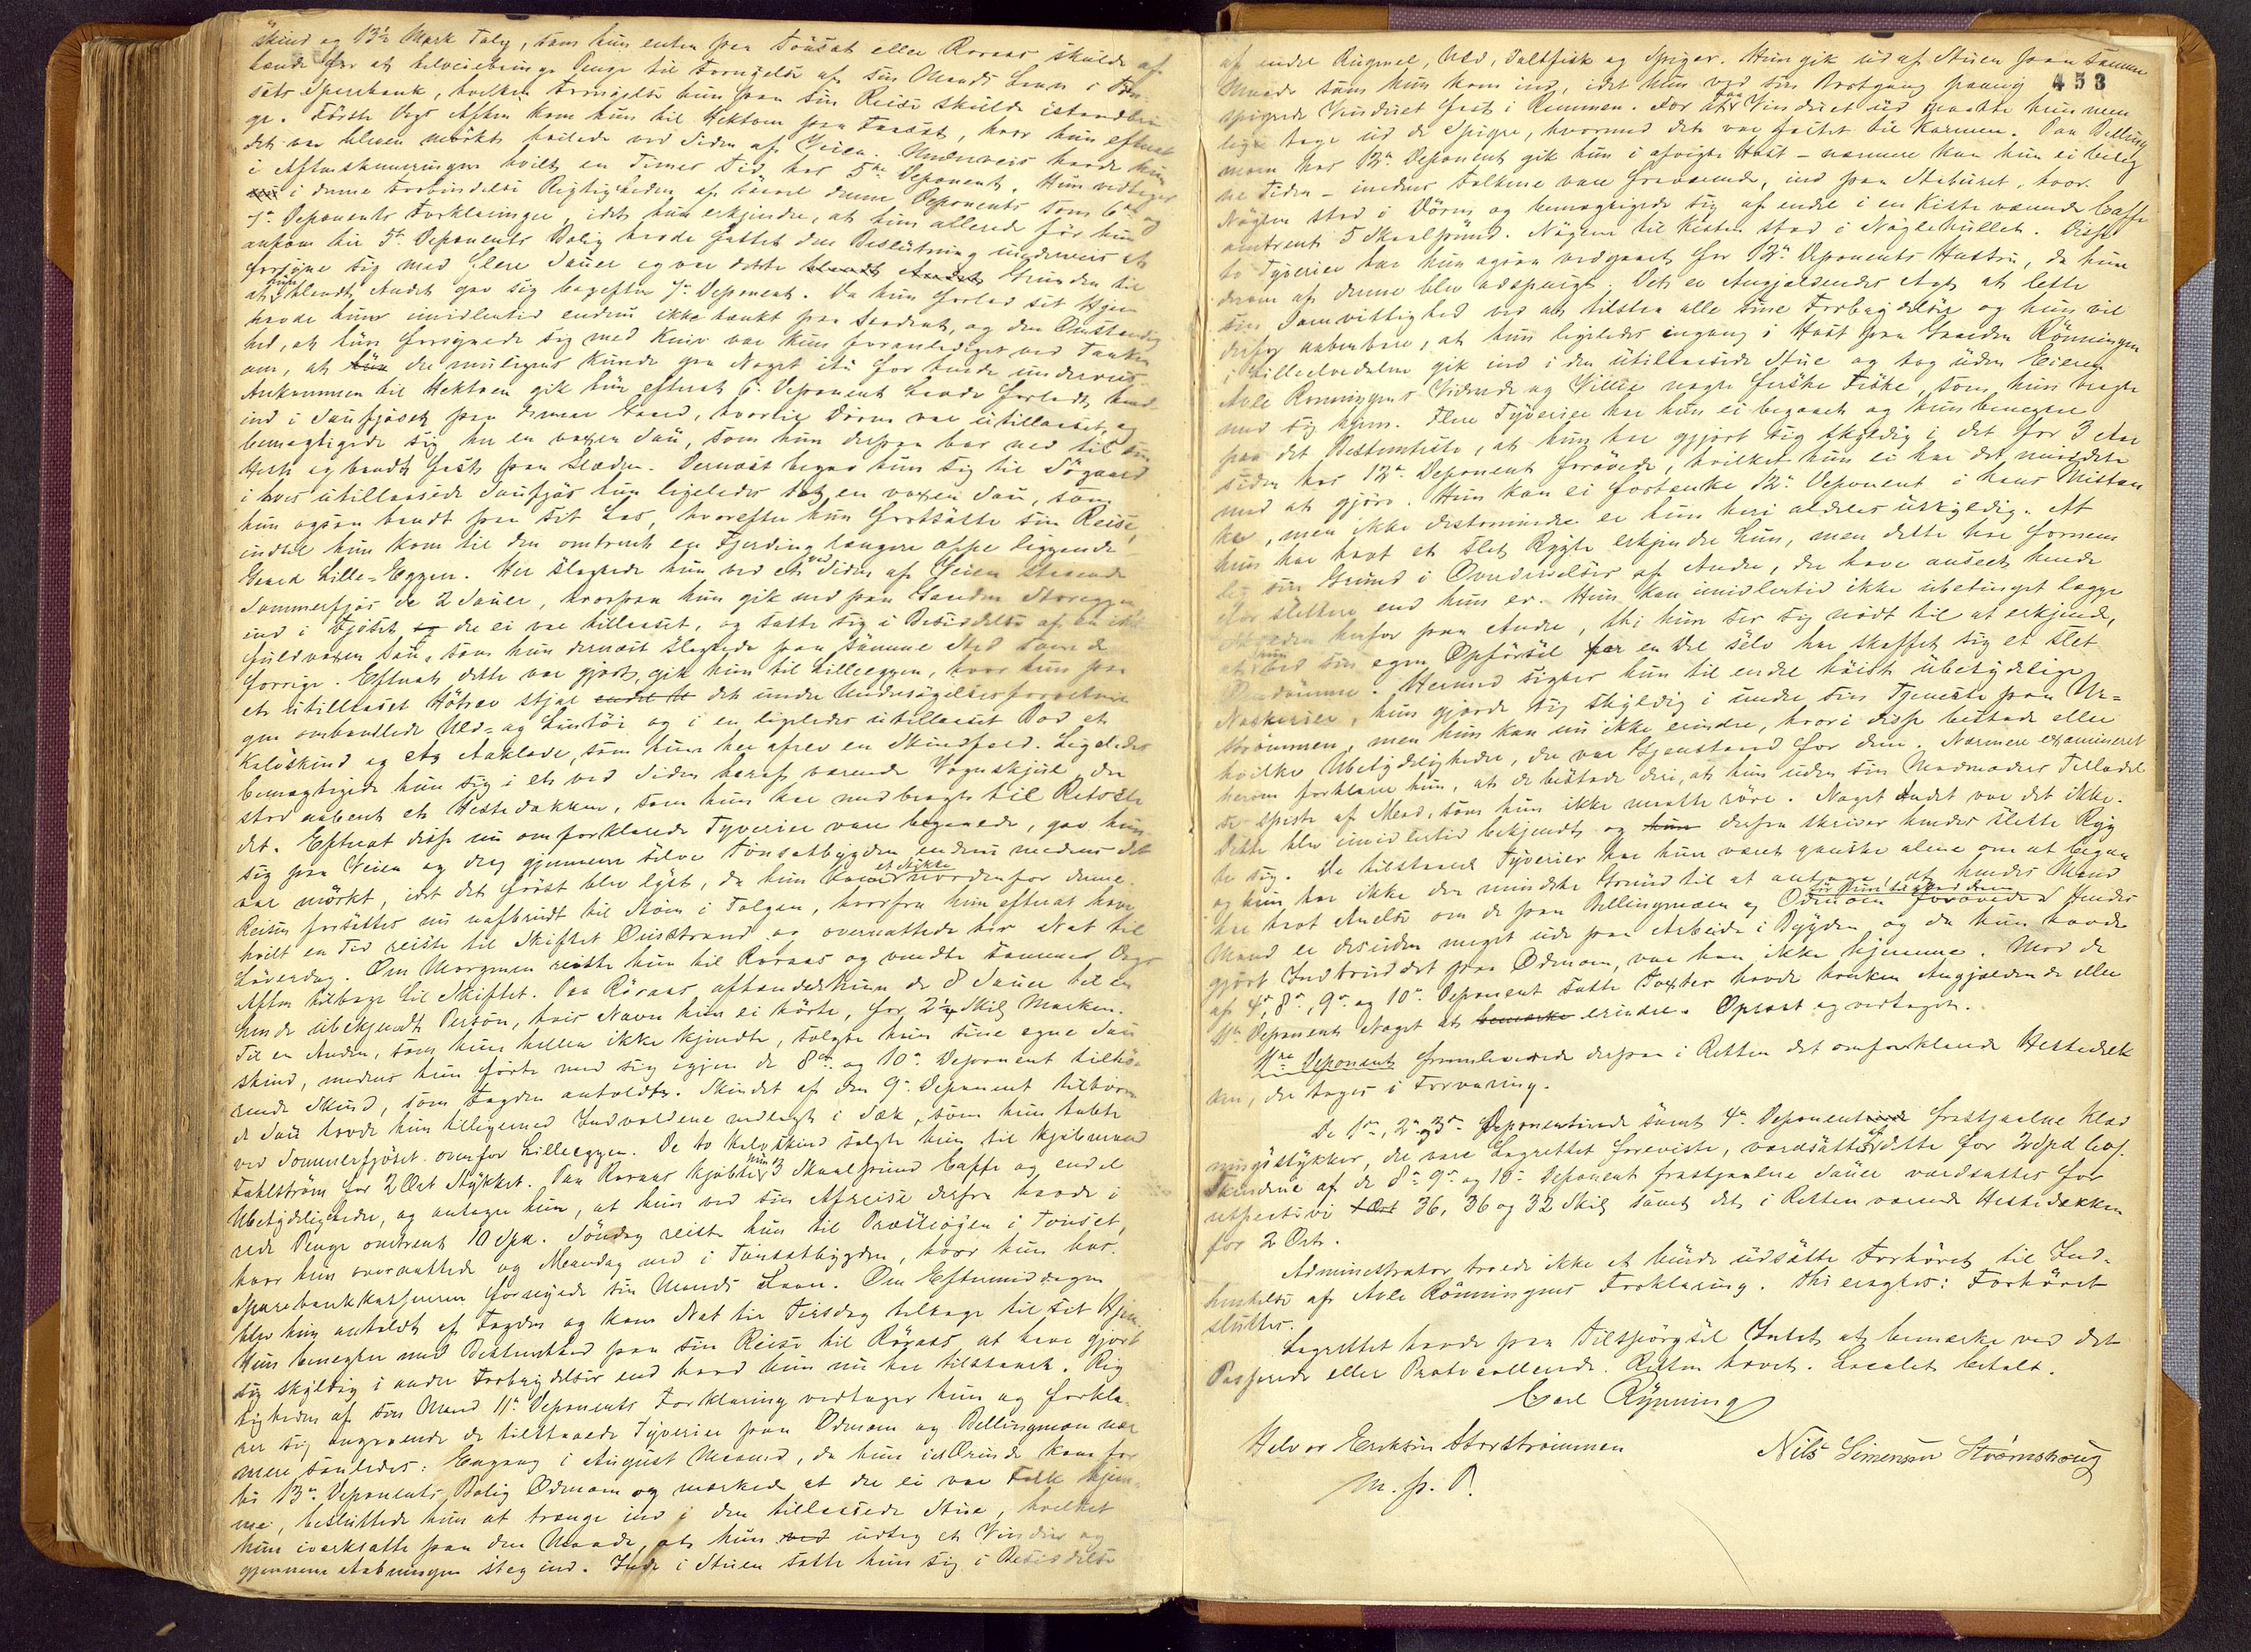 skind og 13½ Mark Talg, som hun enten paa Tönsæt eller Röraas skulde af-
hænde for at tilveiebringe Penge til Fornyelse af sin Mands Laan i Tön-
sets Sparebank, hvilken Fornyelse hun paa sin Reise skulde istandbrin-
ge. Første Dags Aften kom hun til Hektoen paa Faaset, hvor hun efterat
det var bleven mörkt hvilede ved Siden af Veien. Underveis havde hun
i Aftenskumringen hvilt en Times Tid hos 5te Deponent. Hun vedtager
i denne Forbindelse Rigtigheden af saavel denne Deponents som 6te og
7de Deponents Forklaringer, idet hun erkjender, at hun allerede för hun
ankom til 5te Deponents Bolig havde fattet den Beslutning underveis at
forsyne sig med flere Sauer og var dette Grunden til
at hun blandt Andet gav sig bagefter 7de Deponent. Da hun forlod sit Hjem
havde hun imidlertid endnu ikke tænkt paa saadant, og den Omstændig-
hed, at hun forsynede sig med Kniv var kun foranlediget ved Tanken
om, at der muligens kunde gaa Noget itu for hende underveis.
Ankommen til Hektoen gik hun efterat 6te Deponent havde forladt hende
ind i Saufjöset paa denne Gaard, hvortil Dören var utillaaset, og
bemægtigede sig her en voxen Sau, som hun derpaa bar ned til sin
Hest og bandt fast paa Slæden. Dernæst begav hun sig til Sörgaard
i hvis utillaasede Saufjös hun ligeledes tog en voxen Sau, som
hun ogsaa bandt paa sit Læs, hvorefter hun fortsatte sin Reise,
indtil hun kom til den omtrent en Fjerding længere oppe liggende
Gaard Lille-Eggen. Her slagtede hun ved et ved Siden af Veien staaende
Sommerfjös de 2 Sauer, hvorpaa hun gik ned paa Gaarden Storeggen
ind i Fjöset der ei var tillaaset, og satte sig i Besiddelse af en ikke
fuldvoxen Sau, som hun dernæst slagtede paa samme Sted som de
forrige. Efterat dette var gjort, gik hun til Lilleeggen, hvor hun paa
et utillaaset Höbrev stjal det under Undersögelsesforretnin-
gen ombandlede Uld- og Lintöi og i en ligeledes utillaaset Bod et
Kalvskind og et Aaklæde, som hun her afrev en Skindfeld. Ligeledes
bemægtigede hun sig i et ved Siden heraf værende Vognskjul, der
stod aabent et Hestedækken, som hun har medbragt til Retsste-
det. Efterat disse nu omforklarede Tyverier vare begaaede, gav hun
sig paa Veien og drog gjennem selve Tönsætbygden endnu medens det
var mörkt, idet det först blev lyst, da hun kom et Stykke nordenfor denne.
Reisen fortsattes nu uafbrudt til Moen i Tolgen, hvorfra hun efterat have
hvilt en Tid reiste til Skiftet Önsstrand og overnattede her Nat til
Löverdag. Om Morgenen reiste hun til Röraas og vendte samme Dags
Aften tilbage til Skiftet. Paa Röraas afhændede hun de 8 Sauer til en
hende ubekjendt Person, hvis Navn hun ei hörte, for 2½ Skilg Marken.
Til en Anden, som hun heller ikke kjendte, solgte hun sine egne Sau-
skind, medens hun förte med sig igjen de 8de og 10de Deponent tilhö-
rende Skind, som Lagden anholdte. Skindet af den 9de Deponent tilhören-
de Sau havde hun tilligemed Indvoldene nedlagt i Sæk, som hun tabte
ved Sommerfjöset ovenfor Lilleeggen. De to Kalvskind solgte hun til Kjöbmand
Fahlström for 2 Ort Stykket. Paa Röraas kjöbte hun 3 Skaalpund Caffe og endel
Ubetydeligheder, og antager hun, at hun ved sin Afreise derfra havde i
rede Penge omtrent 10 Spd. Söndag reiste hun til Præstöyen i Tönset,
hvor hun overnattede og Mandag ned i Tönsætbygden, hvor hun hos
Sparebankkasserern fornyede sin Mands Laan. Om Eftermiddagen
blev hun anholdt af Lagden og kom Nat til Tirsdag tilbage til sit Hjem.
Hun benegter med Bestemthed paa sin Reise til Röraas at have gjort
sig skyldig i andre Forbrydelser end hvad hun nu har tilstaaet. Rig-
tigheden af sin Mand 11te Deponents Forklaring vedtager hun og forkla-
rer sig angaaende de tilstaaede Tyverier paa Ödmoen og Bellingmoen nær-
mere saaledes: Engang i August Maaned, da hun i et Ærinde kom for-
bi 13de Deponents Bolig Ödmoen og mærkede at der ei var Folk hjem-
me, besluttede hun at trænge ind i den tillaasede Stue, hvilket
hun iværksatte paa den Maade, at hun udtog et Vindue og
gjennem Aabningen steg ind. Inde i Stuen satte hun sig i Besiddelse
453
af endel Rugmel, Uld, Saltfisk og Spiger. Hun gik ud af Stuen paa samme
Maade som hun kom ind, idet hun ved sin Bortgang paany
spigrede Vinduet fast i Rammen. For at faa Vinduet ud maatte hun nem-
lig tage ud de Spigre, hvormed det var fæstet til Karmen. Paa Belling-
moen hos 12te Deponent gik hun i afvigte Höst – nærmere kan hun ei beteg-
ne Tiden – imedens Folkene vare fraværende, ind paa Staburet, hvor
Nöglen stod i Dören og bemægtigede sig af endel i en Kiste værende Caffe
omtrent 5 Skaalpund. Nöglene til Kisten stod i Nöglehullet. Disse
to Tyverier har hun ogsaa vedgaaet for 12te Deponents Hustru, da hun
derom af denne blev adspurgt. Det er Angjældendes Agt at lette
sin Samvittighed ved at tilstaa alle sine Forbrydelser og hun vil
derfor aabenbare, at hun ligeledes engang i Höst paa Gaarden Rönningen
i Lilleelvedalen gik ind i den utillaasede Stue og tog uden Eieren
Avle Rönningens Vidende og Villie nogle ferske Fiske, som hun bragte
med sig hjem. Flere Tyverier har hun ei begaaet og hun benegter
paa det Bestemteste, at hun har gjort sig skyldig i det for 3 Aar
siden hos 12te Deponent forövede, hvilket hun ei har det mindste
med at gjöre. Hun kan ei fortænke 12te Deponent i hans Mistan-
ke, men ikke destomindre er hun heri aldeles uskyldig. At
hun har havt et slet Rygte erkjender hun, men dette har fornem-
lig sin Grund i Ondskelser af Andre, der have anseet hende
for slettere end hun er. Hun kan imidlertid ikke ubetinget lægge
Skylden herfor paa Andre, thi hun ser sig nödt til at erkjende,
at hun ved sin egen Opförsel for en Del selv har skaffet sig et slet
Omdömme. Hermed sigter hun til endel höist ubetydelige
Naskerier, hun gjorde sig skyldig i under sin Tjeneste paa Ur-
strömmen, men hun kan nu ikke erindre, hvori disse bestode eller
hvilke Ubetydeligheder, der var Gjenstand for dem. Nærmere examineret
herom forklarer hun, at de bestode deri, at hun uden sin Madmoders Tilladelse
spiste af Mad, som hun ikke maatte röre. Noget Andet var det ikke.
Dette blev imidlertid bekjendt og derfra skriver hendes slette Ryg-
te sig. De tilstaaede Tyverier har hun været ganske alene om at begaa
og hun har ikke den mindste Grund til at antage, at hendes Mand
har havt Anelse om de paa Bellingmoen og Ödmoen forövede för hun tilstod dem. Hendes
Mand er desuden meget ude paa Arbeide i Bygden og da hun havde
gjort Indbruddet paa Ödmoen, var han ikke hjemme. Mod de
af 4de, 8de, 9de og 10de Deponent satte Taxter havde hverken Angjældende eller
11te Deponent Noget at erindre. Oplæst og vedtaget.
11te Deponent fremleverede derpaa i Retten det omforklarede Hestedæk-
ken, der toges i Forvaring.
De 1ste, 2de og 3de Deponent samt 4de Deponent frastjaalne Klæd-
ningsstykker, der vare Lagrettet foreviste, værdsattes af dette for 2 Spd
Skindene af de 8de 9de og 10de Deponent frastjaalne Sauer værdsattes for
respective 36, 36 og 32 Skilg samt det i Retten værende Hestedækken
for 2 Ort.
Administrator troede ikke at burde udsætte Forhöret til Ind-
hentelse af Avle Rönningens Forklaring. Thi eragtes: Forhöret
sluttes.
Lagrettet havde paa Tilspörgsel Intet at bemærke ved det
Passerede eller Protocollerede. Retten hævet. Localet betalt.
Carl Rynning
Helvor Eriksen Storströmmen
Nils Simensen Strömshaug
M. p. P.